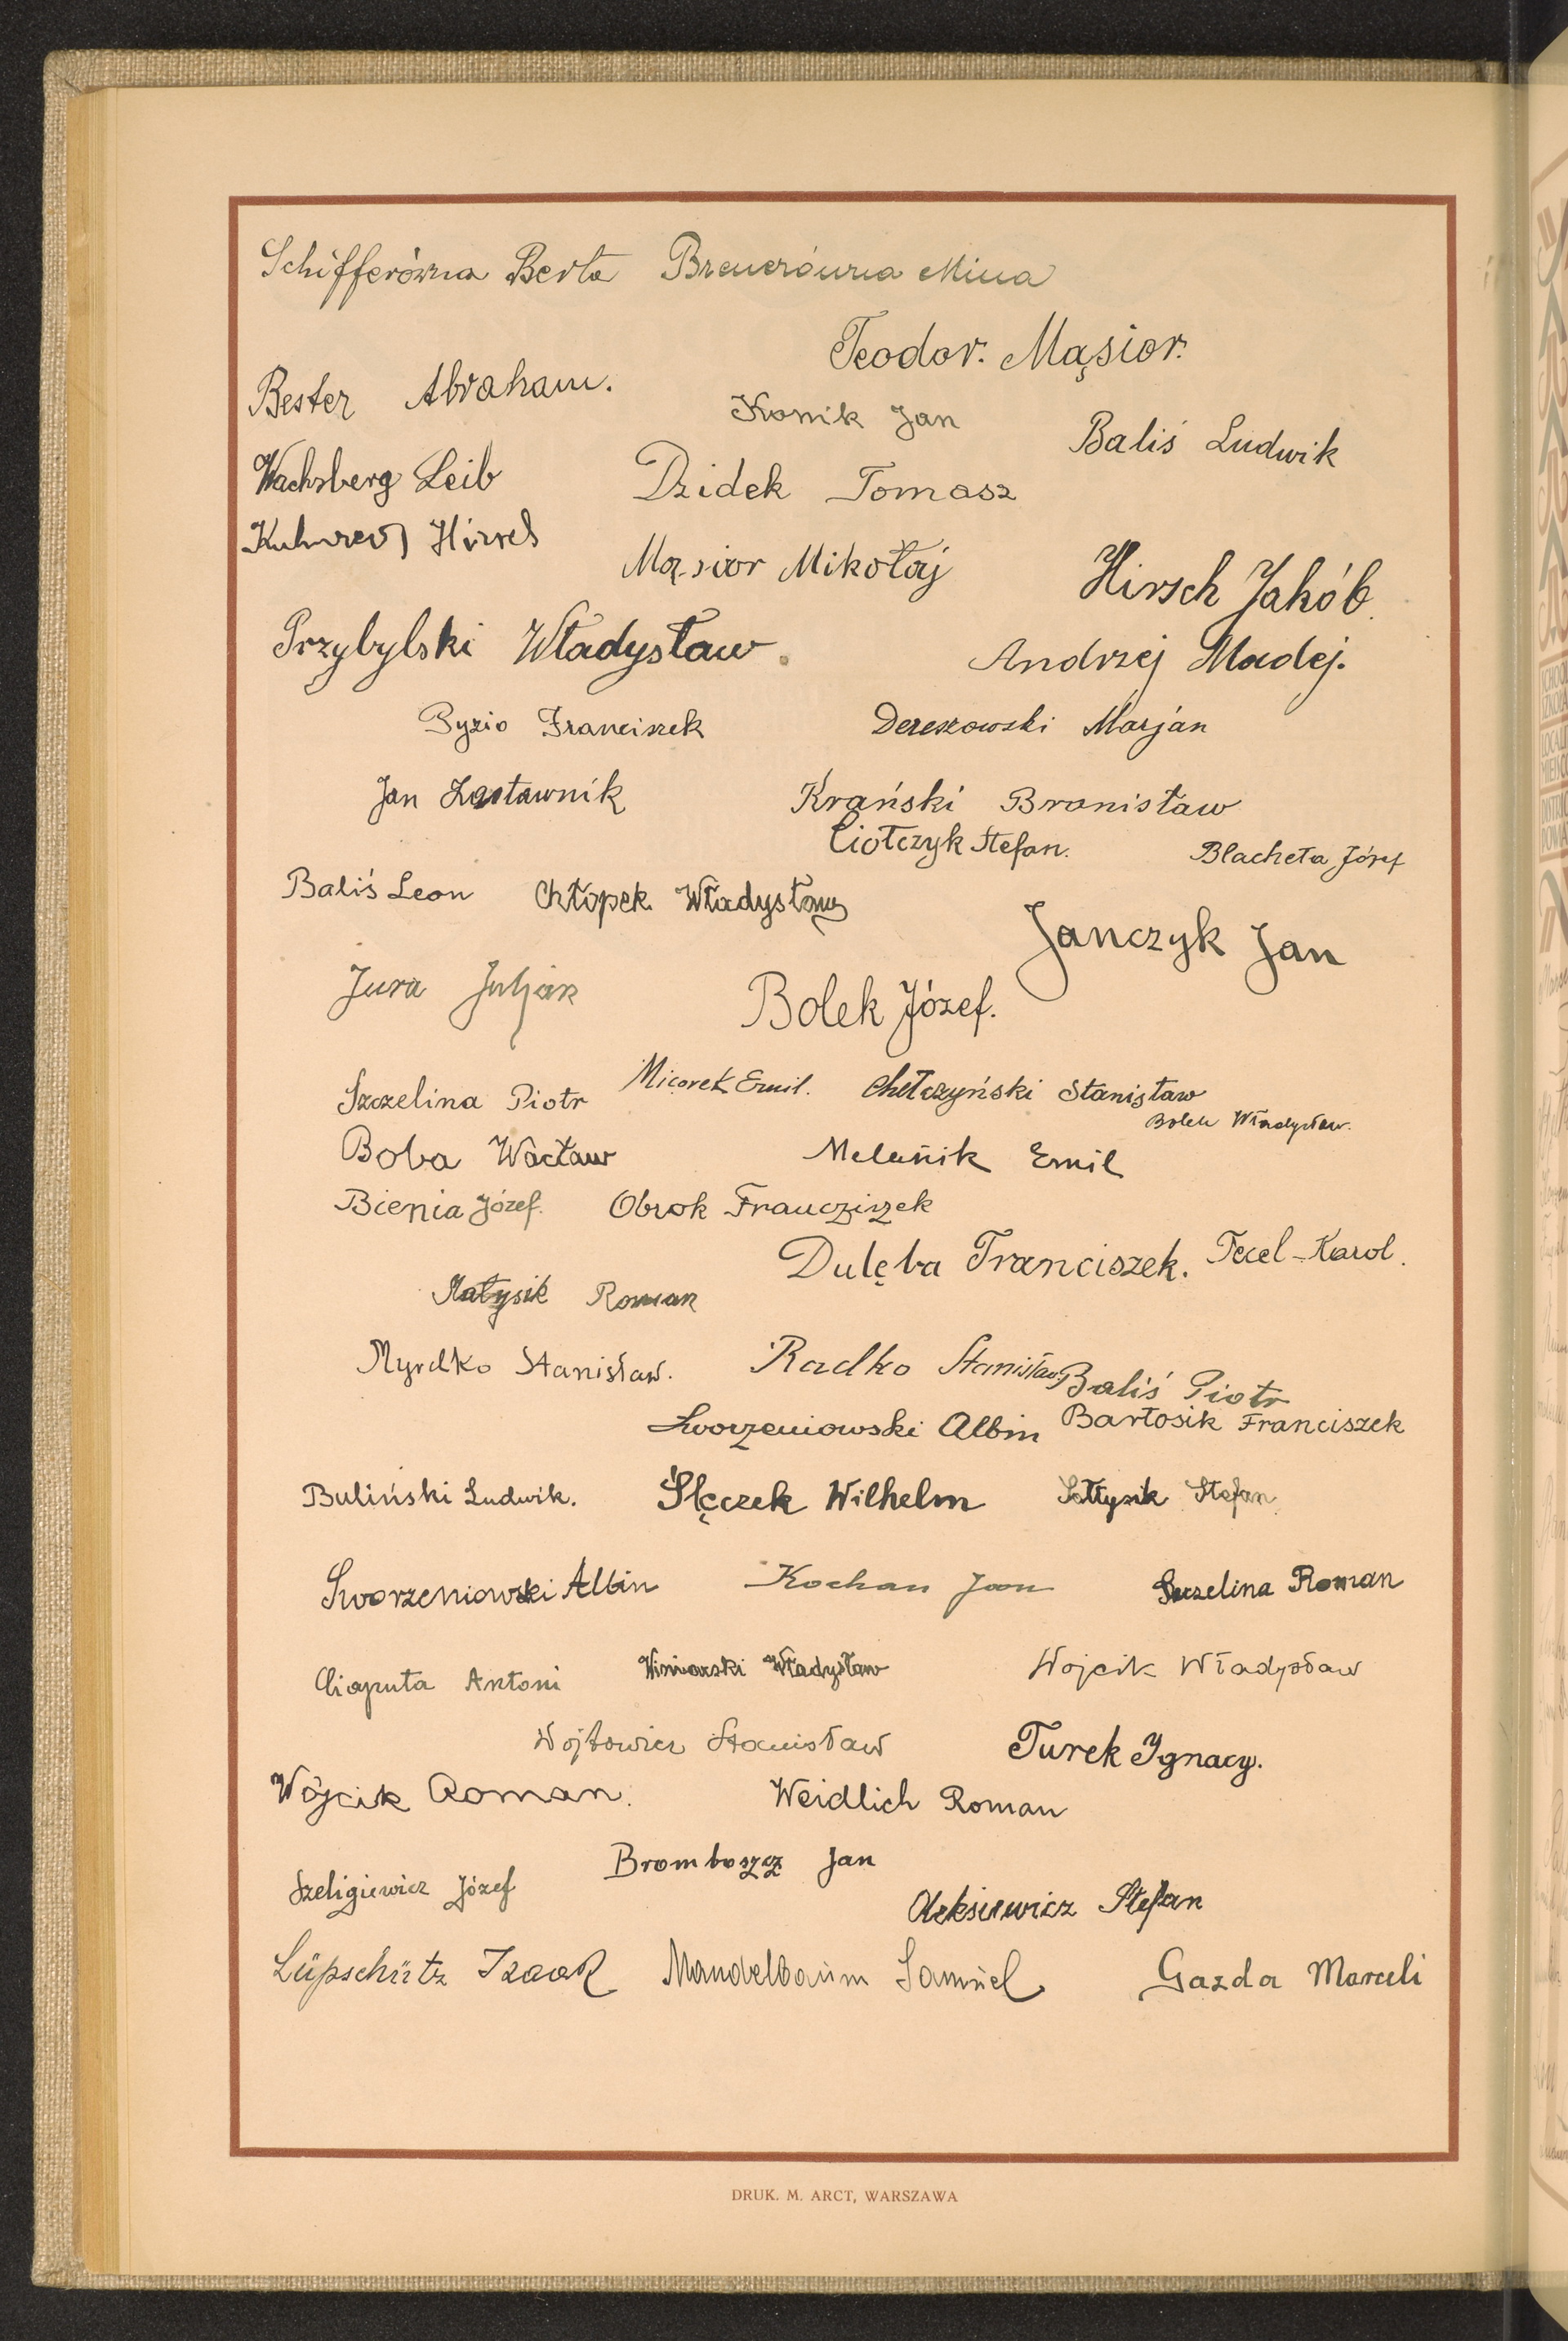 Schifferówna Berta Breuerówna Mina
Teodor. Mąsior.
Bester Abraham.
Konik Jan
Baliś Ludwik
Wachsberg Leib
Dzidek Tomasz
Mąsior Mikołaj
Hirsch Jakób.
Przybylski Władysław.
Andrzej Madej.
Pyzio Franciszek
Dereszowski Marjan
Jan Zastawnik
Krański Bronisław
Ciołczyk Stefan.
Blacheta Józef
Baliś Leon
Chłopek Władysław
Janczyk Jan
Jura Juljan
Bolek Józef.
Szczelina Piotr
Micorek Emil.
Chełczyński Stanisław
Bolek Władysław.
Boba Wacław
Melańik Emil
Bienia Józef.
Obrok Francziszek
Dulęba Franciszek.
Fecel-Karol.
Małysik Roman
Myrdko Stanisław.
Radko Stanisław
Baliś Piotr
Sworzeniowski Albin
Bartosik Franciszek
Buliński Ludwik.
Ślęczek Wilhelm
Sołtysik Stefan.
Sworzeniowski Albin
Kochan Jan
Szczelina Roman
Ciaputa Antoni
Winiarski Władysław
Wojcik Władysław
Wojtowicz Stanisław
Turek Ignacy.
Wójcik Roman.
Weidlich Roman
Bromboszcz Jan
Szeligiewicz Józef
Aleksiewicz Stefan
Lüpschütz Izaak
Mandelbaum Samuel
Gazda Marceli
DRUK. M. ARCT, WARSZAWA